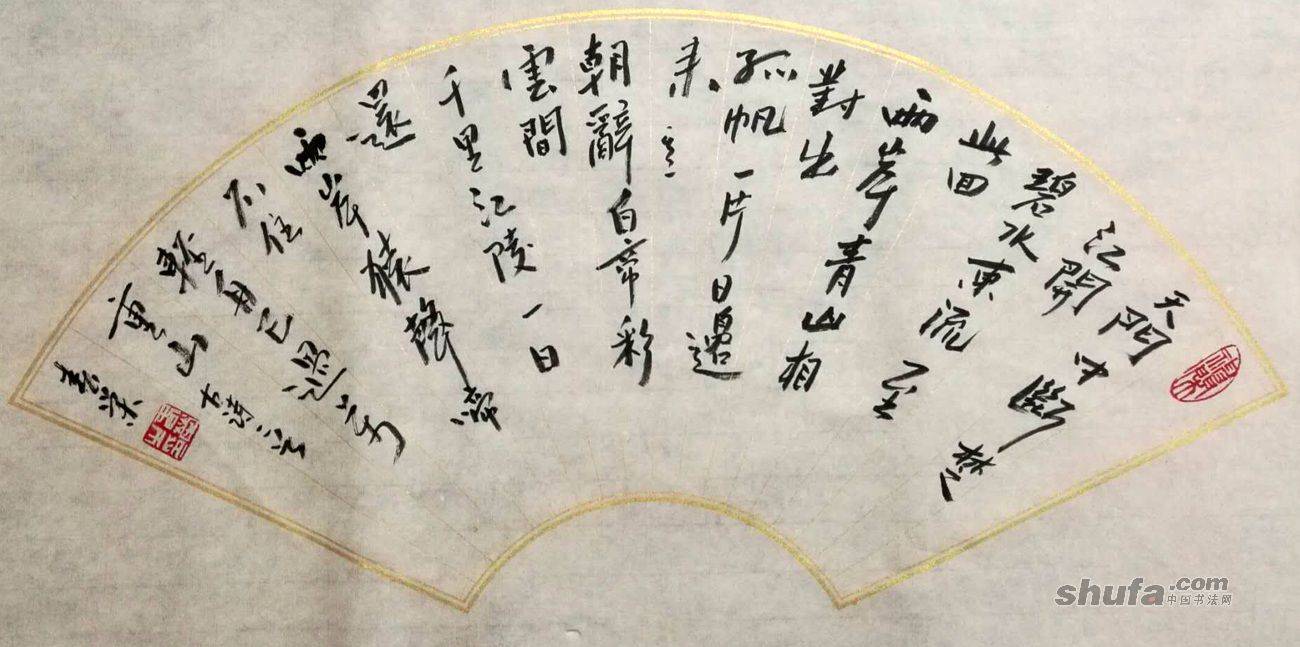 天門中斷楚
江開
碧水東流至
此回
兩岸青山相
對出
孤帆一片日邊
来
朝辭白帝彩
雲間
千里江陵一日
還
兩岸猿聲啼
不住
輕舟已過萬
重山 古詩二首
shufa.com
中国书法网